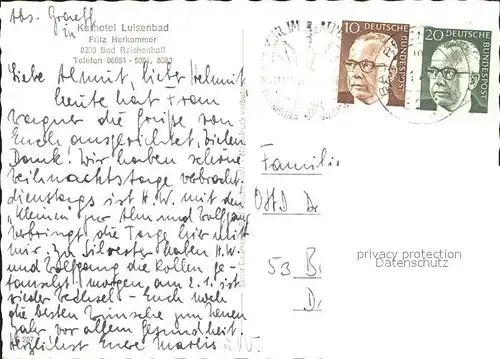 Abs. Graeff
in
Kurhotel Luisenbad
Fritz Herkommer
8230 Bad Reichenhall
Telefon 08651 - 5081, 5082
Liebe Almut, lieber Helmut
heute hat Frau
Wagner die Grüße von
Euch ausgerichtet, vielen
Dank! Wir haben schöne
Weihnachtstage verbracht.
dienstags ist H.W. mit den
„Kleinen" zur Alm und Wolfgang
verbringt die Tage hier mit
mir. Zu Silvester haben H.W.
und Wolfgang die Rollen ge-
tauscht, morgen am 2.1. ist
wieder Wechsel - Euch noch
die besten Wünsche zum neuen
Jahr vor allem Gesundheit.
Herzlichst Eure Marlis
10
DEUTSCHE
BUNDESPOST
20
DEUTSCHE
BUNDESPOST
Famili
OStD Dr
53 B
D
privacy protection
Datenschutz